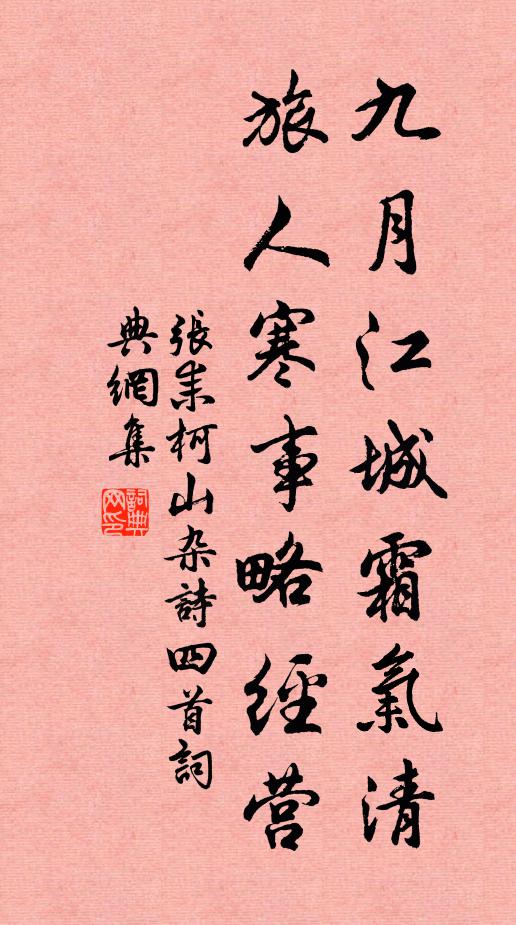 九月江城霜氣清
旅人寒事略經营
張耒柯山杂詩四首詞
典網集
詞典
网印